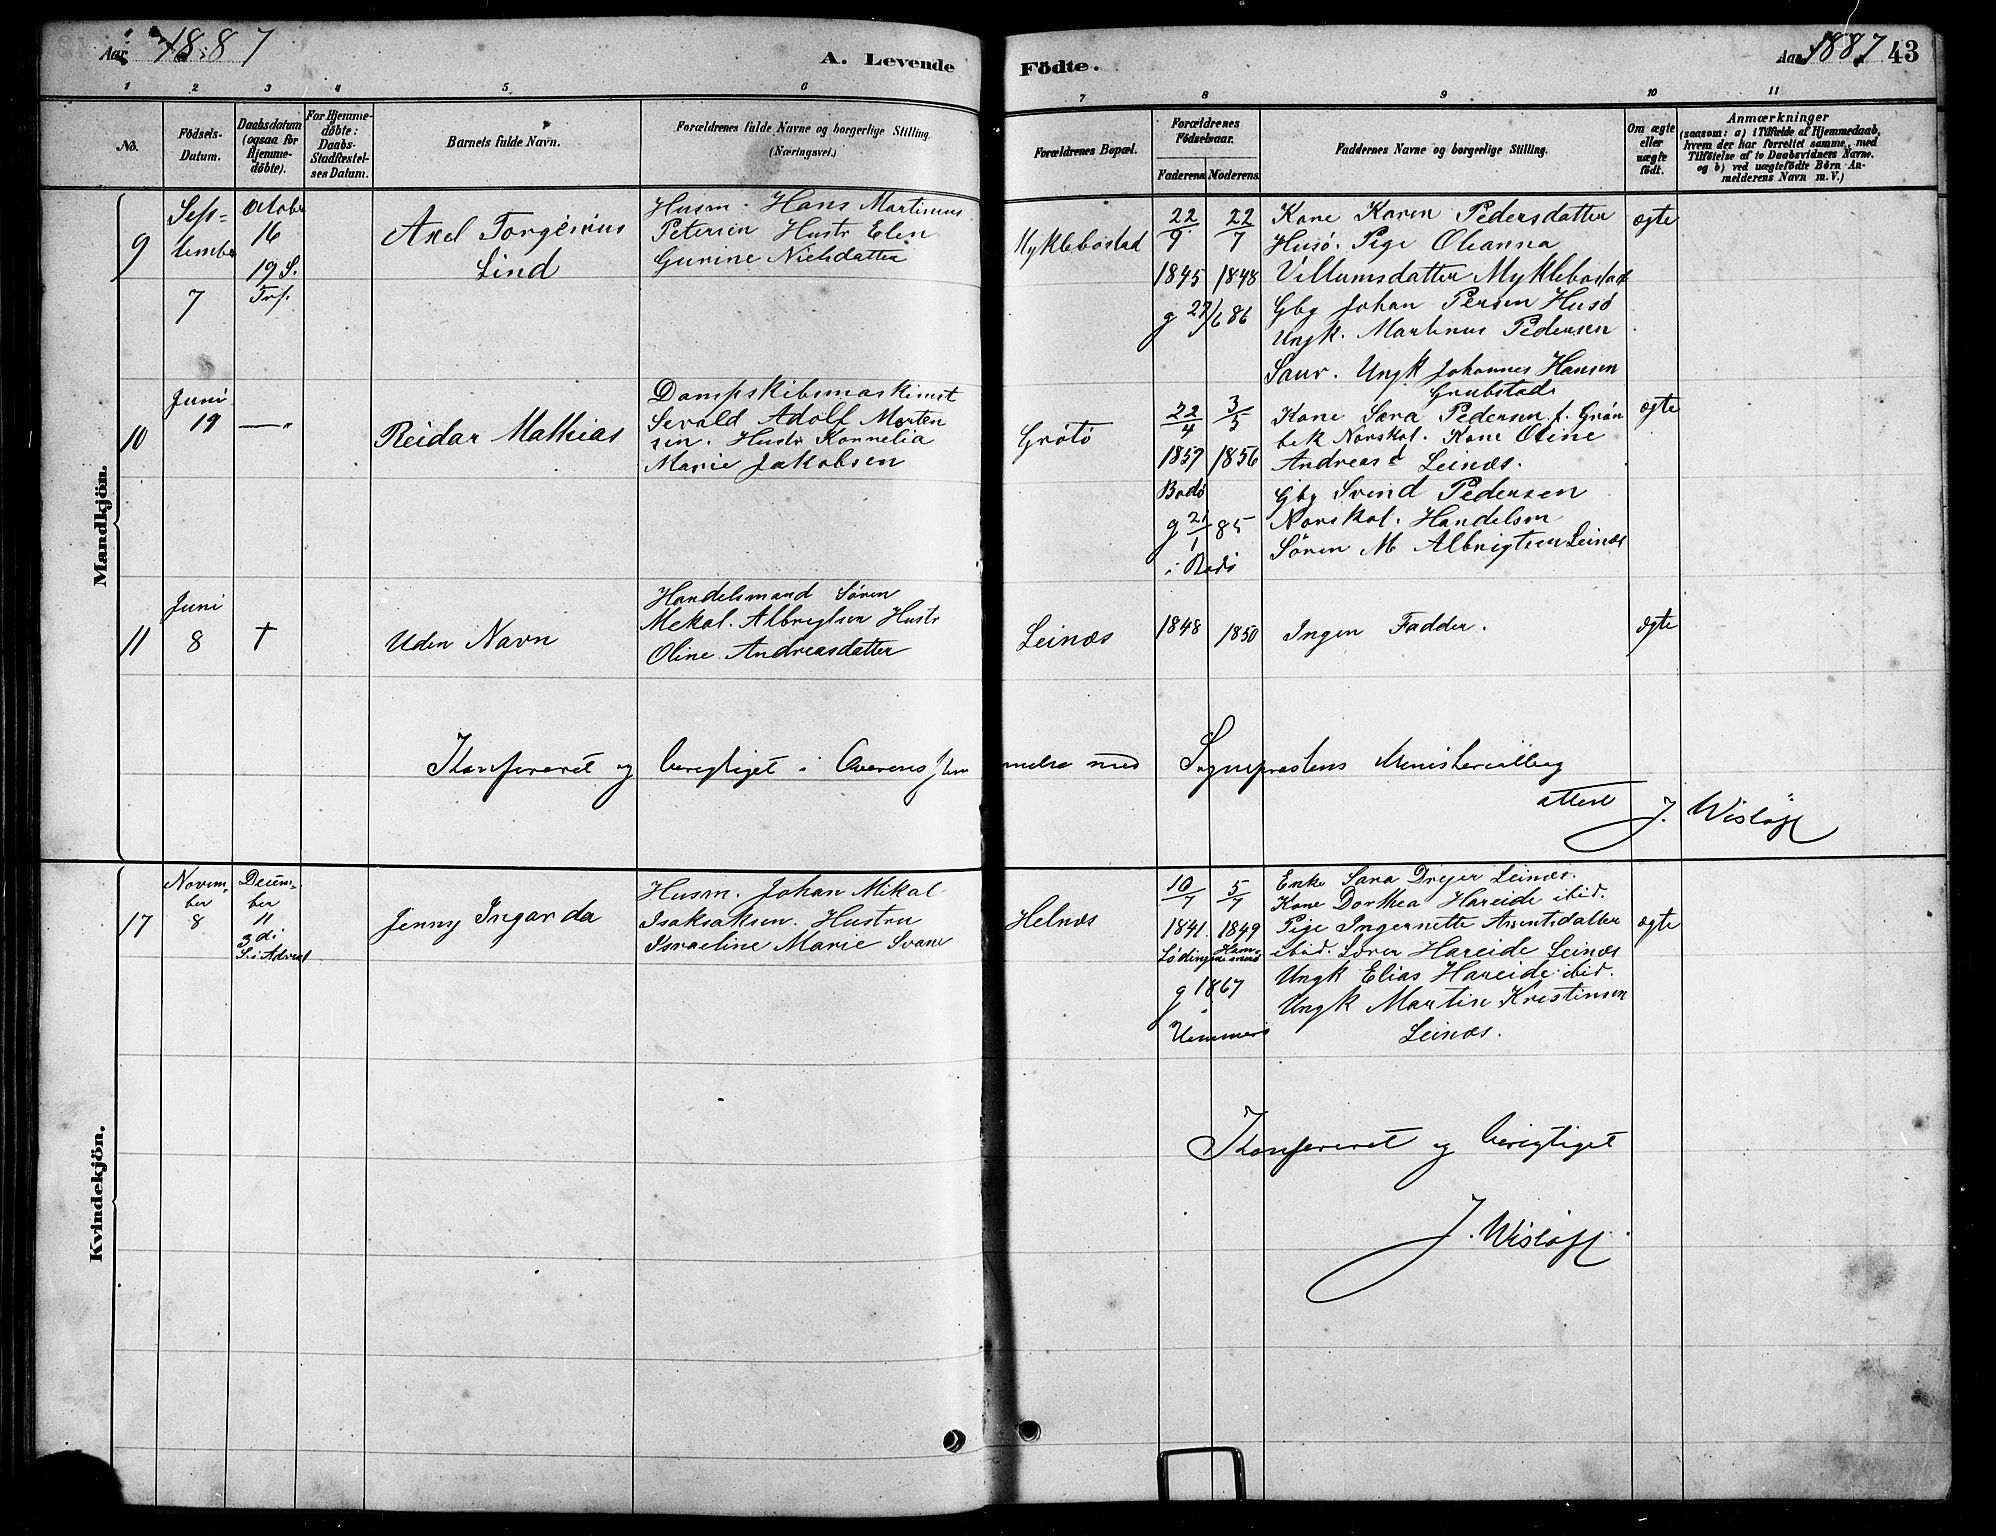 Aar 1887
A. Levende Födte.
Aar 1887 43
1 2 3 4 5 6 7 8 9 10 11
No.
Födsels-Datum.
Daabsdatum (ogsaa for Hjemmedöbte).
For Hjemmedöbte: Daabs-Stadfæstelses Datum.
Barnets fulde Navn.
Forældrenes fulde Navne og borgerlige Stilling.
(Næringsvei.)
Forældrenes Bopæl.
Forældrenes Födselsaar.
Faderens. Moderens.
Faddernes Navne og borgerlige Stilling.
Om ægte eller uægte födt.
Anmærkninger
(saasom: a) i Tilfælde af Hjemmedaab, hvem der har forrettet samme, med Tilföielse af to Daabsvidners Navne. og b) ved uægtefödte Börn Anmelderens Navn m. V.)
Mandkjön.
9
Sep-
tember
7
October
16
19 S.
Trf.
Axel Torgeirius
Lind
Husm. Hans Martinus
Petersen Hustr Elen
Gurine Nielsdatter
Myklebostad
22/9 22/7
1845 1848
g 27/6 86
Kone Karen Pedersdatter
Husö. Pige Oleanna
Villumsdatter Myklebostad
Gbg Johan Persen Husö
Ungk. Martinus Pedersen
Saur. Ungk Johannes Hansen
Grubstad
ægte
10
Juni
19
— "
Reidar Mathias
Dampskibsmaskinist
Sevald Adolf Morten
sen. Hustr Kornelia
Marie Jakobsen
Grötö
22/4 3/5
1857 1856
Bodö
g 21/1 85
i Bodö
Kone Sara Pedersen f. Grön
bek Norskot. Kone Oline
Andreasd Leinæs.
Gbg Svend Pedersen
Norskot. Handelsm
Sören M Albrigtsen Leinæs
ægte
11
Juni
8
†
Uden Navn
Handelsmand Sören
Mekal. Albrigtsen Hustr
Oline Andreasdatter
Leinæs
1848 1850
Ingen Fadder.
ægte
Konfereret og berigtiget i Overensstemmelse med Sogneprestens Ministerialbog
attest J. Wislöff
Kvindekjön.
17
Novem-
ber
8
Decem-
ber
11
3di
S. i Advent
Jenny Ingarda
Husm. Johan Mikal
Isaksaksen. Hustru
Israeline Marie Svane
Helnæs
10/7 5/7
1841. 1849
Löding
g 1867
Enke Sara Dreyer Leinæs.
Kone Dorthea Hareide ibid.
Pige Ingernette Arentsdatter
ibid. Sören Hareide Leinæs
Ungk Elias Hareide ibid.
Ungk Martin Kristinsen
Leinæs.
ægte
Konfereret og berigtiget
J. Wislöff